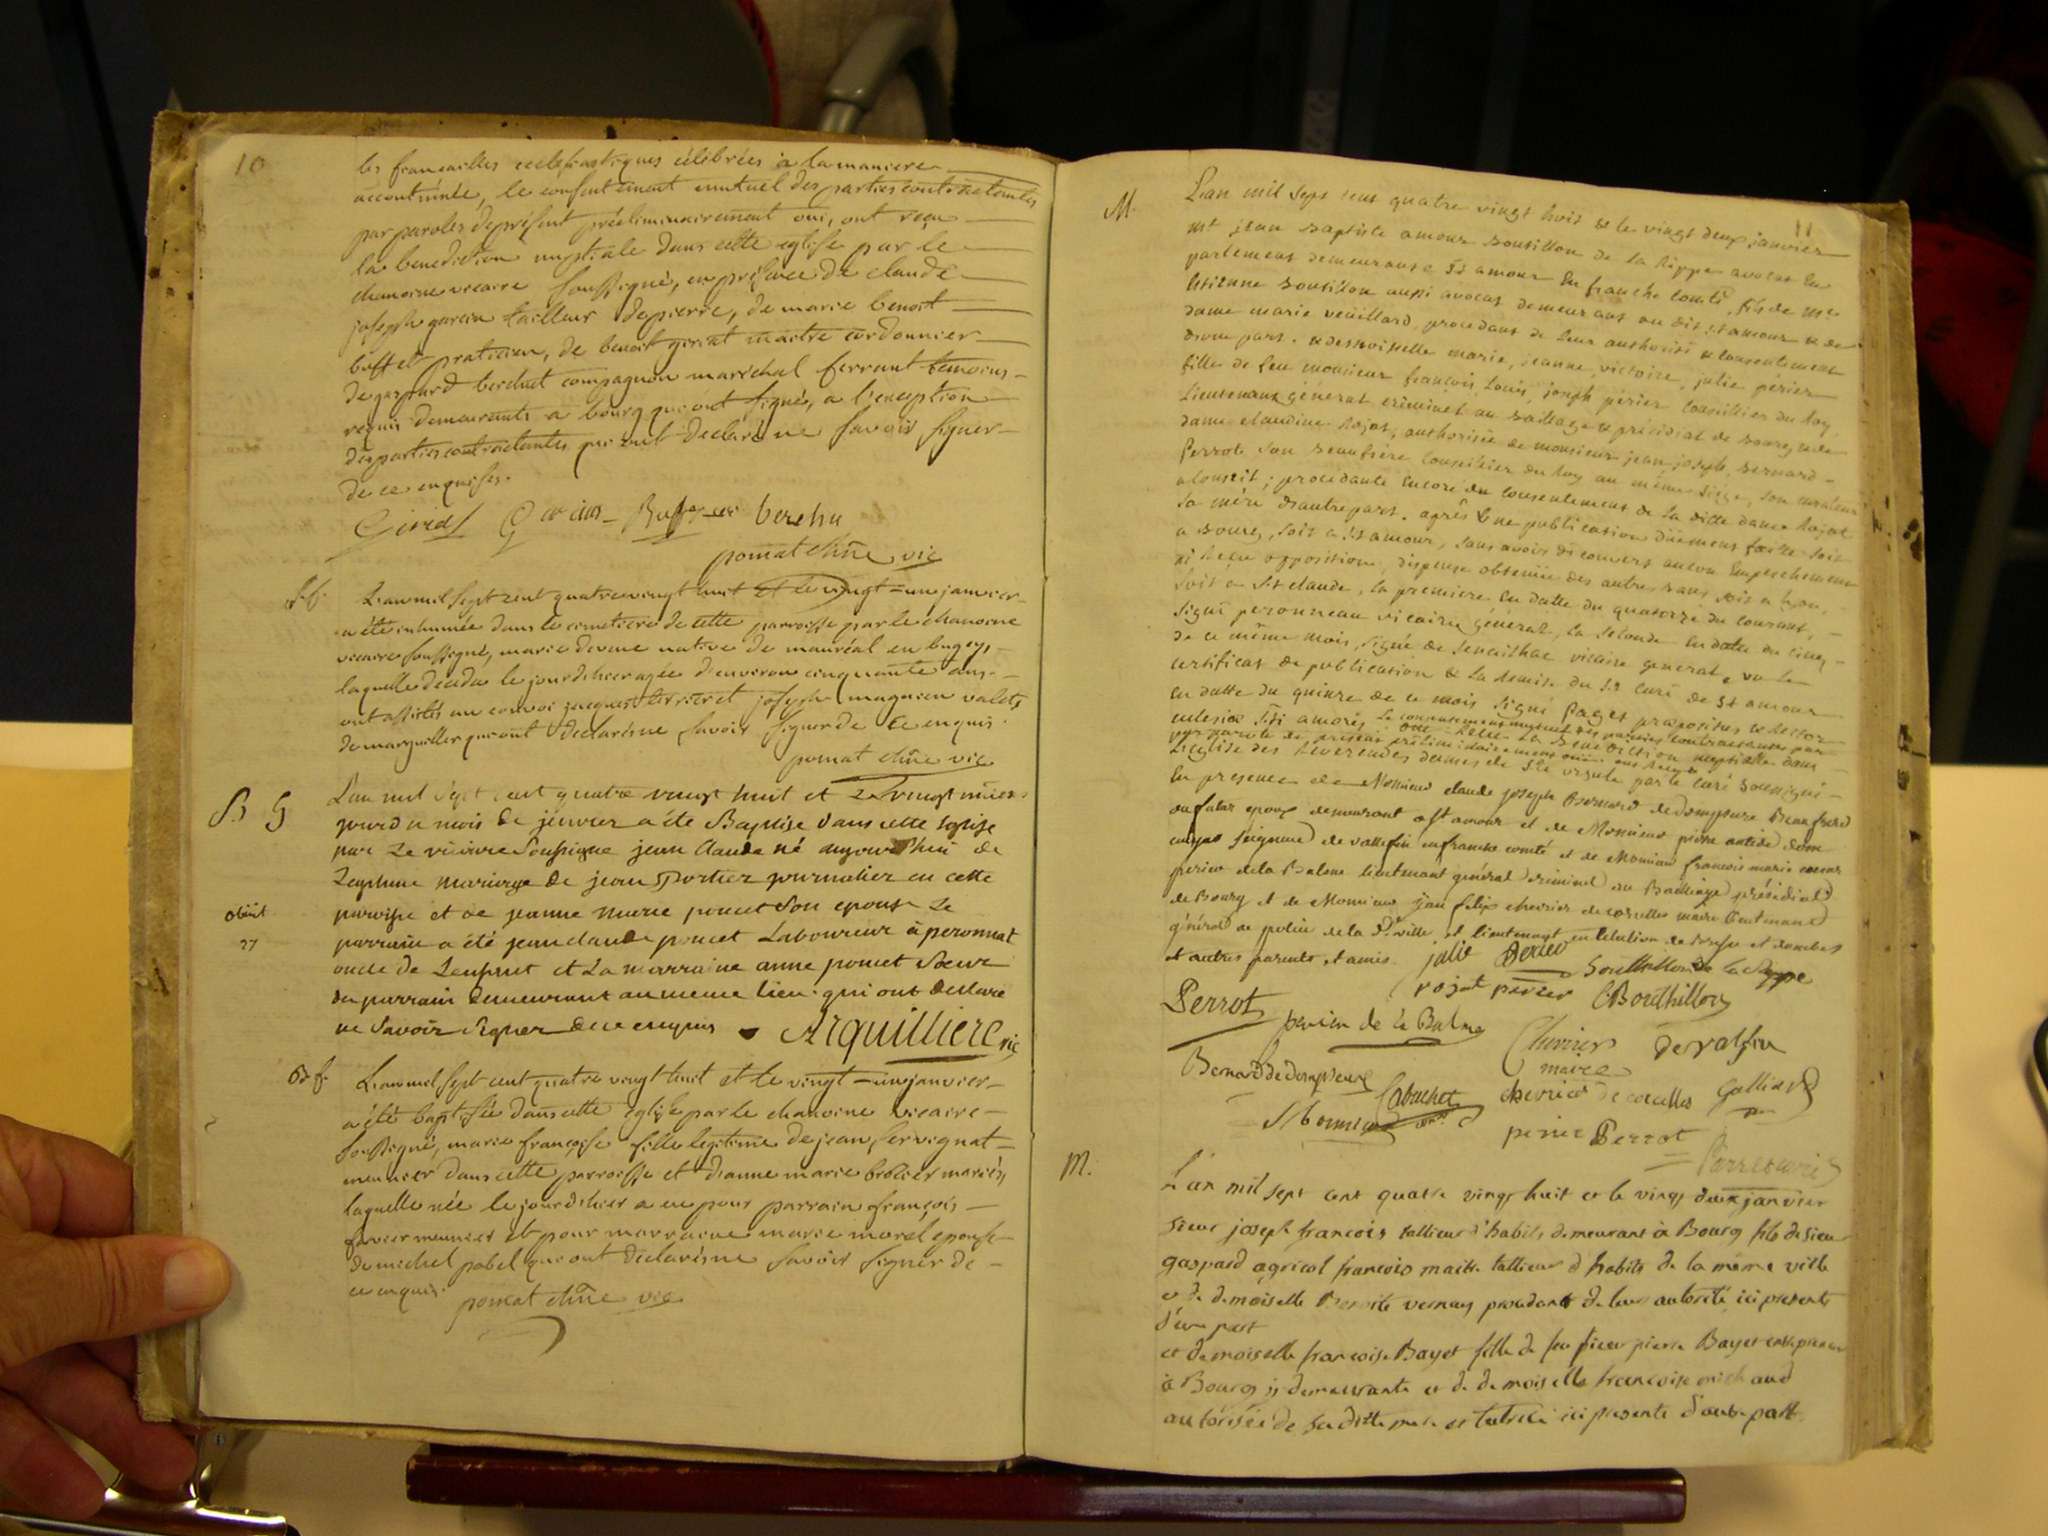 10
les fiancailles ecclesiastiques célébrées à la maniere
accoutumée, le consentement mutuel des parties contractantes
par paroles de présent préliminairement oui, ont reçu
la benediction nuptiale dans cette eglise par le
chanoine vicaire soussigné, en présence de claude
joseph garcin tailleur de pierre, de marie benoit
buffet praticien, de benoit giriat maitre cordonnier
de gaspard berchut compagnon maréchal ferrant temoins
requis demeurants a bourg qui ont signé, a l'exception
des parties contractantes qui ont declaré ne savoir signer
de ce enquises.
pomat chne vic
L'an mil sept cent quatre vingt huit et le vingt = un janvier
a été inhumée dans le cimetiere de cette parroisse par le chanoine
vicaire soussigné, marie native de en bugey,
laquelle decedée le jour d'hier agée d'environ cinquante ans
ont assistés au convoi jacques terrier et joseph magnien valets
de marguillier qui ont declarés ne savoir signer de ce enquis.
pomat chne vic
B G
L'an mil sept cent quatre vingt huit et le vingt unieme
jour du mois de janvier a été Baptisé dans cette Eglise
par Le vicaire Soussigné jean Claude né aujourd'hui de
Legitime mariage de jean Portier journalier en cette
paroisse et de jeanne marie poncet Son epouse Le
obiit
27
parrain a été jean claude poncet Laboureur à peronnat
oncle de L'enfant et La marraine anne poncet Soeur
du parrain demeurant au meme lieu qui ont declaré
ne Savoir Signer de ce enquis Arquilliere vic
L'an mil sept cent quatre vingt huit et le vingt = un janvier
a été baptisée dans cette eglise par le chanoine vicaire
soussigné, marie françoise fille legitime de jean servignat
meunier dans cette parroisse et d'anne marie brocier mariés
laquelle née le jour d'hier a eu pour parrain françois
favier meunier et pour marraine marie morel epouse
de michel pobel qui ont declarés ne savoir signer de
ce enquis.
pomat chne vic
11
M.
L'an mil sept cent quatre vingt huit et le vingt deux janvier
mr jean Baptiste amour Bouthillon de la Sippe avocat en
parlement demeurant a St amour En franche comté, fils de me
Etienne Bouthillon aussi avocat demeurant au dit st amour et de
dame marie veuillard, procedant de leur authorité et consentement
d'une part. et demoiselle marie, jeanne, victoire, julie périer
fille de feu monsieur françois, Louis, joseph périer Conseiller du Roy,
Lieutenant général criminel au Bailliage et présidial de Bourg et de
dame claudine Rojat, authorisée de monsieur jean joseph Bernard
Perrot Son Beaufrère Conseiller du Roy au même Siège, Son curateur
a conseil; procedante Encore du consentement de la ditte dame Rojat
Sa mère d'autre part. après Une publication duement faitte soit
a Bourg, soit a St amour, sans avoir découvert aucun Empeschement
ni Reçu opposition, dispense obtenüe des autres Bans soit a Lyon,
soit a St claude, la premiere En datte du quatorze du courant,
signé peronneau vicaire général, la seconde En datte du cinq
de ce même mois, signé de vicaire general, vu le
certificat de publication & la Remise du Sr Curé de St amour
En datte du quinze de ce mois signé Pages praepositus & Rector
Ecclesiae Sti amoris, Le consentement mutuel des parties contractantes par
par parole de présent préliminairement ouï, ont Reçu la Bénédiction nuptiale dans
L'eglise des Reverendes dames de Ste ursule par le Curé Soussigné
En présence de Monsieur claude joseph Bernard de dompsure Beaufrere
du futur epoux demeurant a st amour et de Monsieur pierre antide
seigneur de vallefin en franche comté et de Monsieur francois marie
perier de la Balme lieutenant général criminel au Bailliage présidial
de Bourg et de Monsieur jean felix chevrier de corcelles maire lieutenant
général de police de la de ville, et lieutenant en l'election de Bresse et dombes
et autres parents et amis. julie Perier
rojat perier Bouthillon de la Sippe
Perrot C Bouthillon
perier de la Balme
Bernard de dompsure
Cabuchet
Chevrier de corcelles
perier Perrot
M.
L'an mil sept cent quatre vingt huit et le vingt deux janvier
sieur joseph françois tallieur d'habits demeurant à Bourg fils de sieur
gaspard agricol françois maitre tallieur d'habits de la même ville
et de demoiselle Benoite vernay procedant de leur autorité, ici presents
d'une part
et demoiselle françoise Bayet fille de feu sieur pierre Bayet entrepreneur
à Bourg y demeurante et de demoiselle francoise michaud
autorisée de sa ditte mere et tutrice ici presente d'autre part